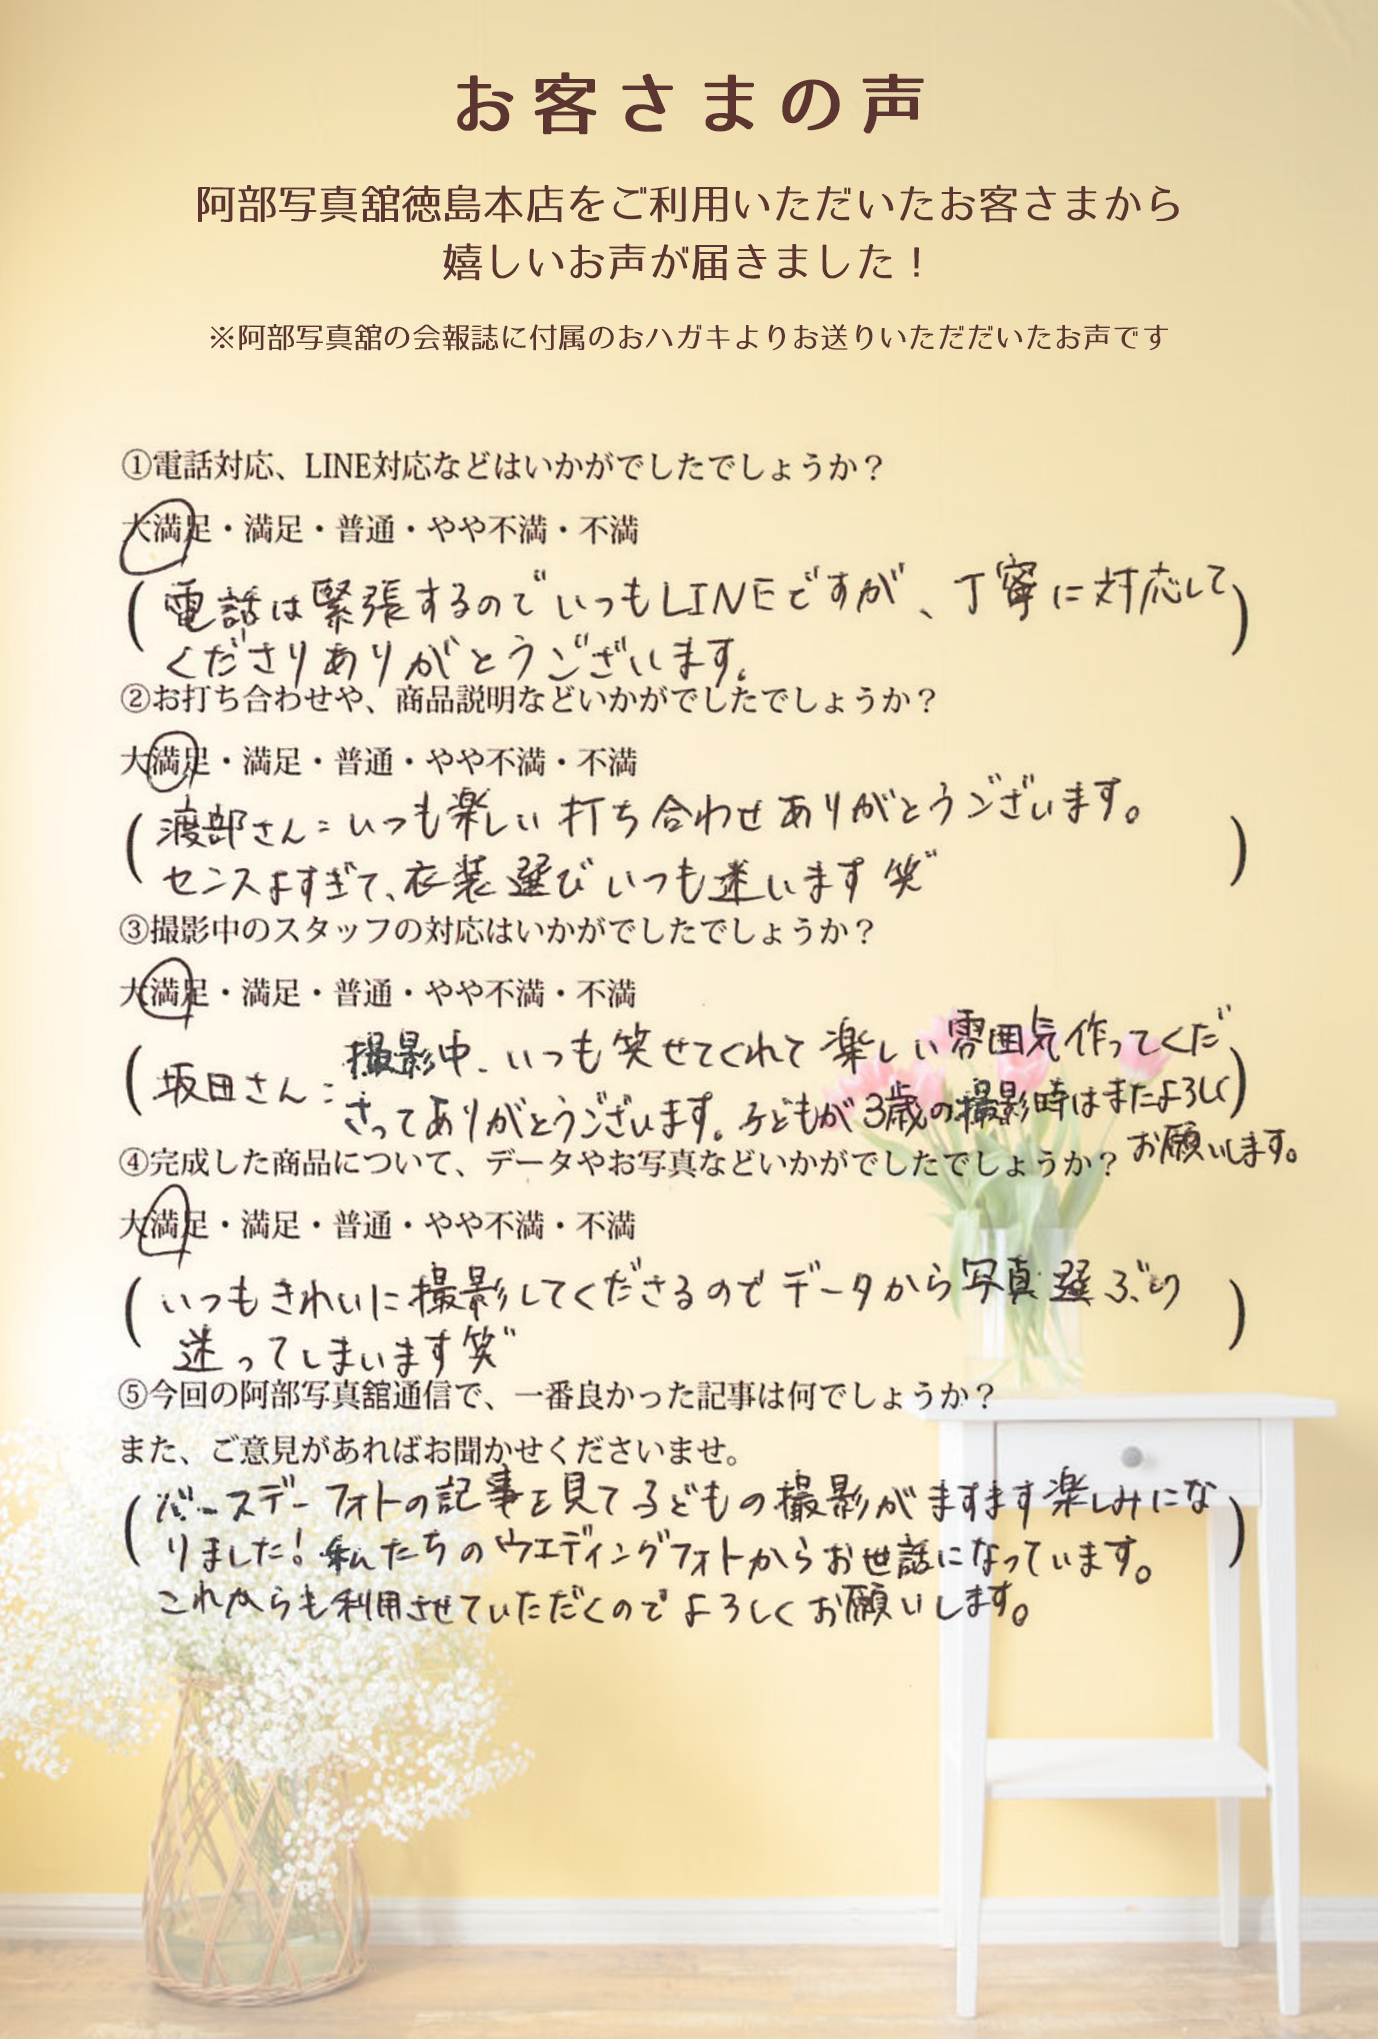 お客さまの声
阿部写真舘徳島本店をご利用いただいたお客さまから
嬉しいお声が届きました！
※阿部写真舘の会報誌に付属のおハガキよりお送りいただだいたお声です
①電話対応、LINE対応などはいかがでしたでしょうか？
大満足・満足・普通・やや不満・不満
(電話は緊張するのでいつもLINEですが、丁寧に対応して)
くださりありがとうございます。
②お打ち合わせや、商品説明などいかがでしたでしょうか？
大満足・満足・普通・やや不満・不満
(渡部さん：いつも楽しい打ち合わせありがとうございます。
センスよすぎて、衣装選びいつも迷います笑゛)
③撮影中のスタッフの対応はいかがでしたでしょうか？
大満足・満足・普通・やや不満・不満
(坂田さん：撮影中、いつも笑せてくれて楽しい雰囲気作ってくだ
さってありがとうございます。子どもが3歳の撮影時はまたよろしく)
お願いします。
④完成した商品について、データやお写真などいかがでしたでしょうか？
大満足・満足・普通・やや不満・不満
(いつもきれいに撮影してくださるのでデータから写真選ぶの)
迷ってしまいます笑゛
⑤今回の阿部写真舘通信で、一番良かった記事は何でしょうか？
また、ご意見があればお聞かせくださいませ。
(バースデーフォトの記事を見て子どもの撮影がますます楽しみにな
りました！私たちのウエディングフォトからお世話になっています。)
これからも利用させていただくのでよろしくお願いします。